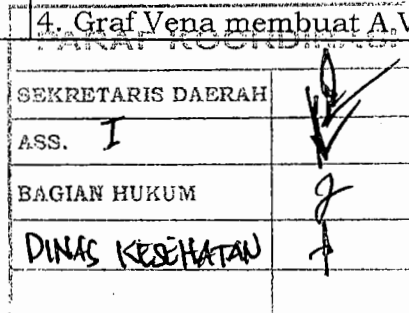 4. Graf Vena membuat A.V
PARAF KOORDINASI
SEKRETARIS DAERAH
ASS. I
BAGIAN HUKUM
DINAS KESEHATAN